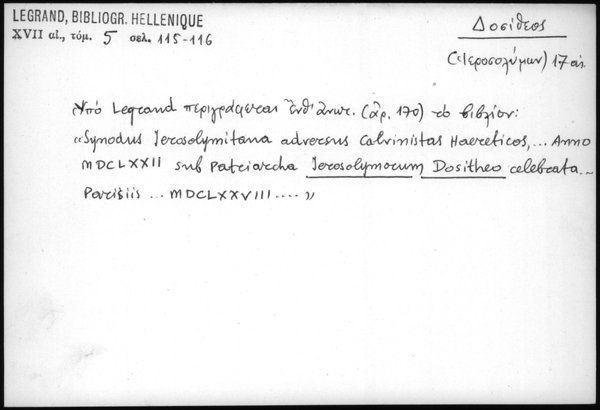 LEGRAND, BIBLIOGR. HELLENIQUE
XVII αἰ., τόμ. 5 σελ. 115-116
Δοσίθεος
(Ἱεροσολύμων) 17 αἰ.
Ὑπό Legrand περιγράφεται ἔνθ' ἀνωτ. (ἀρ. 170) τὸ βιβλίον:
«Synodus Ierosolymitana adversus Calvinistas Haereticos, ... Anno
MDCLXXII sub Patriarcha Ierosolymorum Dositheo celebrata...
Parisiis ... MDCLXXVIII .... »